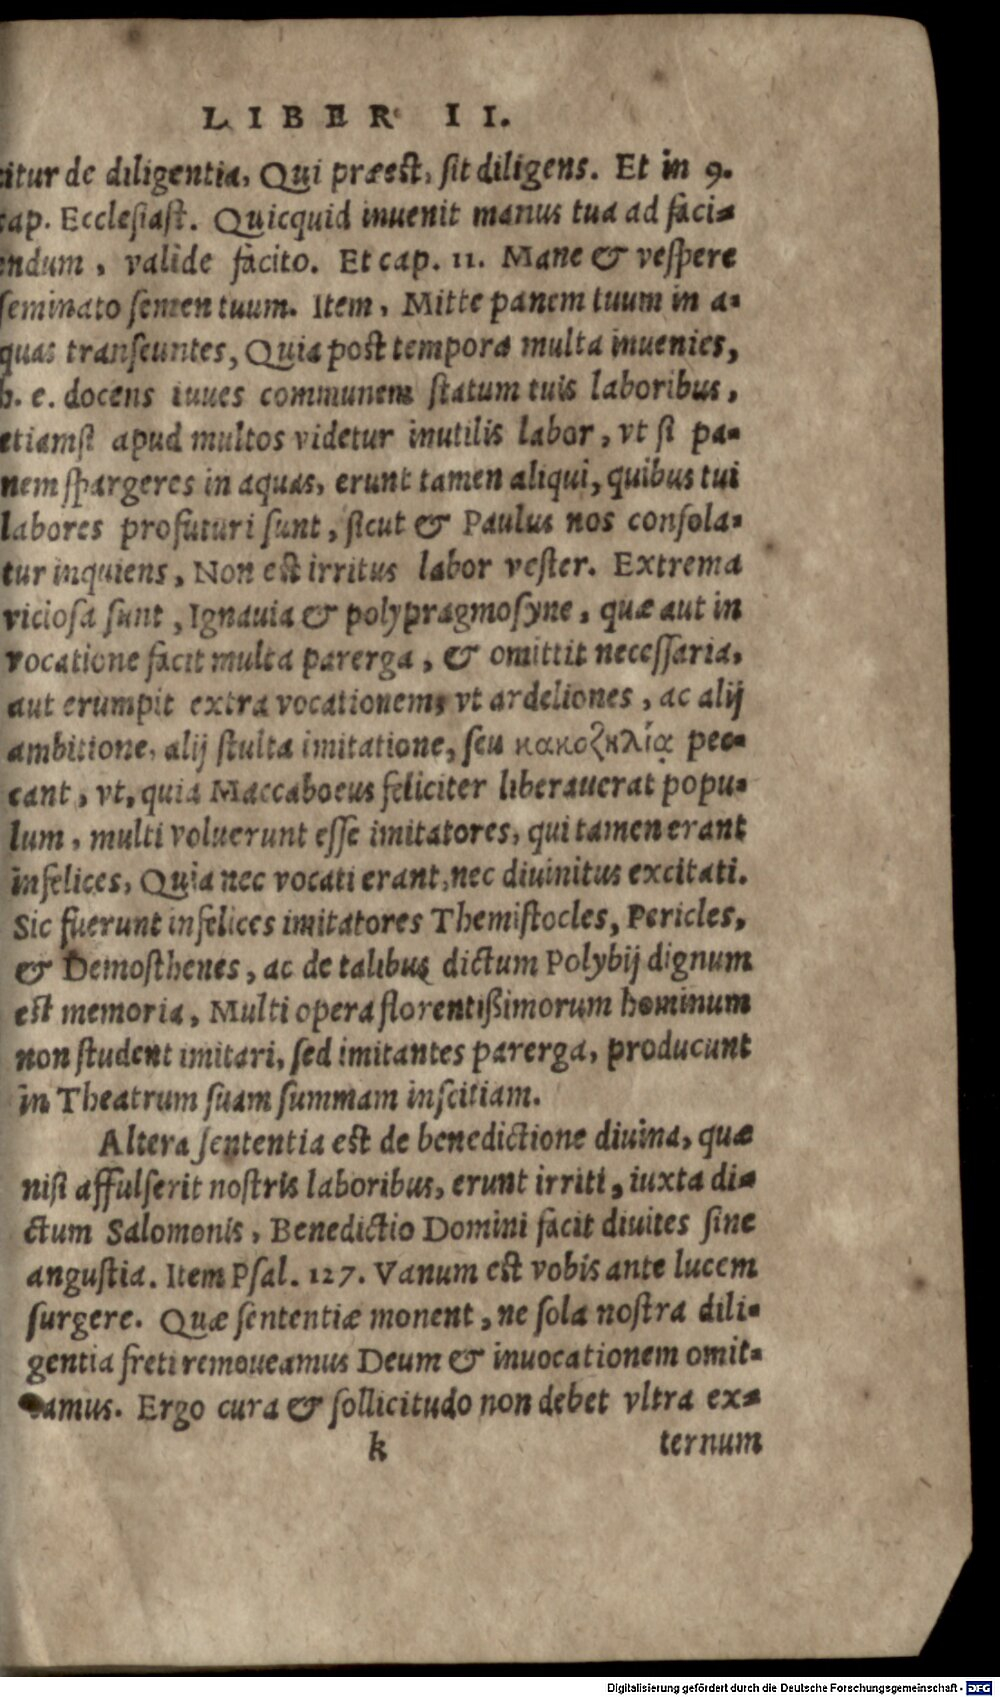 LIBER II.
citur de diligentia, Qui præest, sit diligens. Et in 9.
cap. Ecclesiast. Quicquid inuenit manus tua ad faci-
endum, valide facito. Et cap. 11. Mane & vespere
seminato semen tuum. Item, Mitte panem tuum in a-
quas transeuntes, Quia post tempora multa inuenies,
h. e. docens iuues communem statum tuis laboribus,
etiamsi apud multos videtur inutilis labor, vt si pa-
nem spargeres in aquas, erunt tamen aliqui, quibus tui
labores profuturi sunt, sicut & Paulus nos consola-
tur inquiens, Non est irritus labor vester. Extrema
viciosa sunt, Ignauia & polypragmosyne, quæ aut in
vocatione facit multa parerga, & omittit necessaria,
aut erumpit extra vocationem, vt ardeliones, ac alij
ambitione, alij stulta imitatione, seu κακοζηλίᾳ pec-
cant, vt, quia Maccaboeus feliciter liberauerat popu-
lum, multi voluerunt esse imitatores, qui tamen erant
infelices, Quia nec vocati erant, nec diuinitus excitati.
Sic fuerunt infelices imitatores Themistocles, Pericles,
& Demosthenes, ac de talibus dictum Polybij dignum
est memoria, Multi opera florentißimorum hominum
non student imitari, sed imitantes parerga, producunt
in Theatrum suam summam inscitiam.
Altera sententia est de benedictione diuina, quæ
nisi affulserit nostris laboribus, erunt irriti, iuxta di-
ctum Salomonis, Benedictio Domini facit diuites sine
angustia. Item Psal. 127. Vanum est vobis ante lucem
surgere. Quæ sententiæ monent, ne sola nostra dili-
gentia freti remoueamus Deum & inuocationem omit-
tamus. Ergo cura & sollicitudo non debet vltra ex-
k ternum
Digitalisierung gefördert durch die Deutsche Forschungsgemeinschaft - DFG